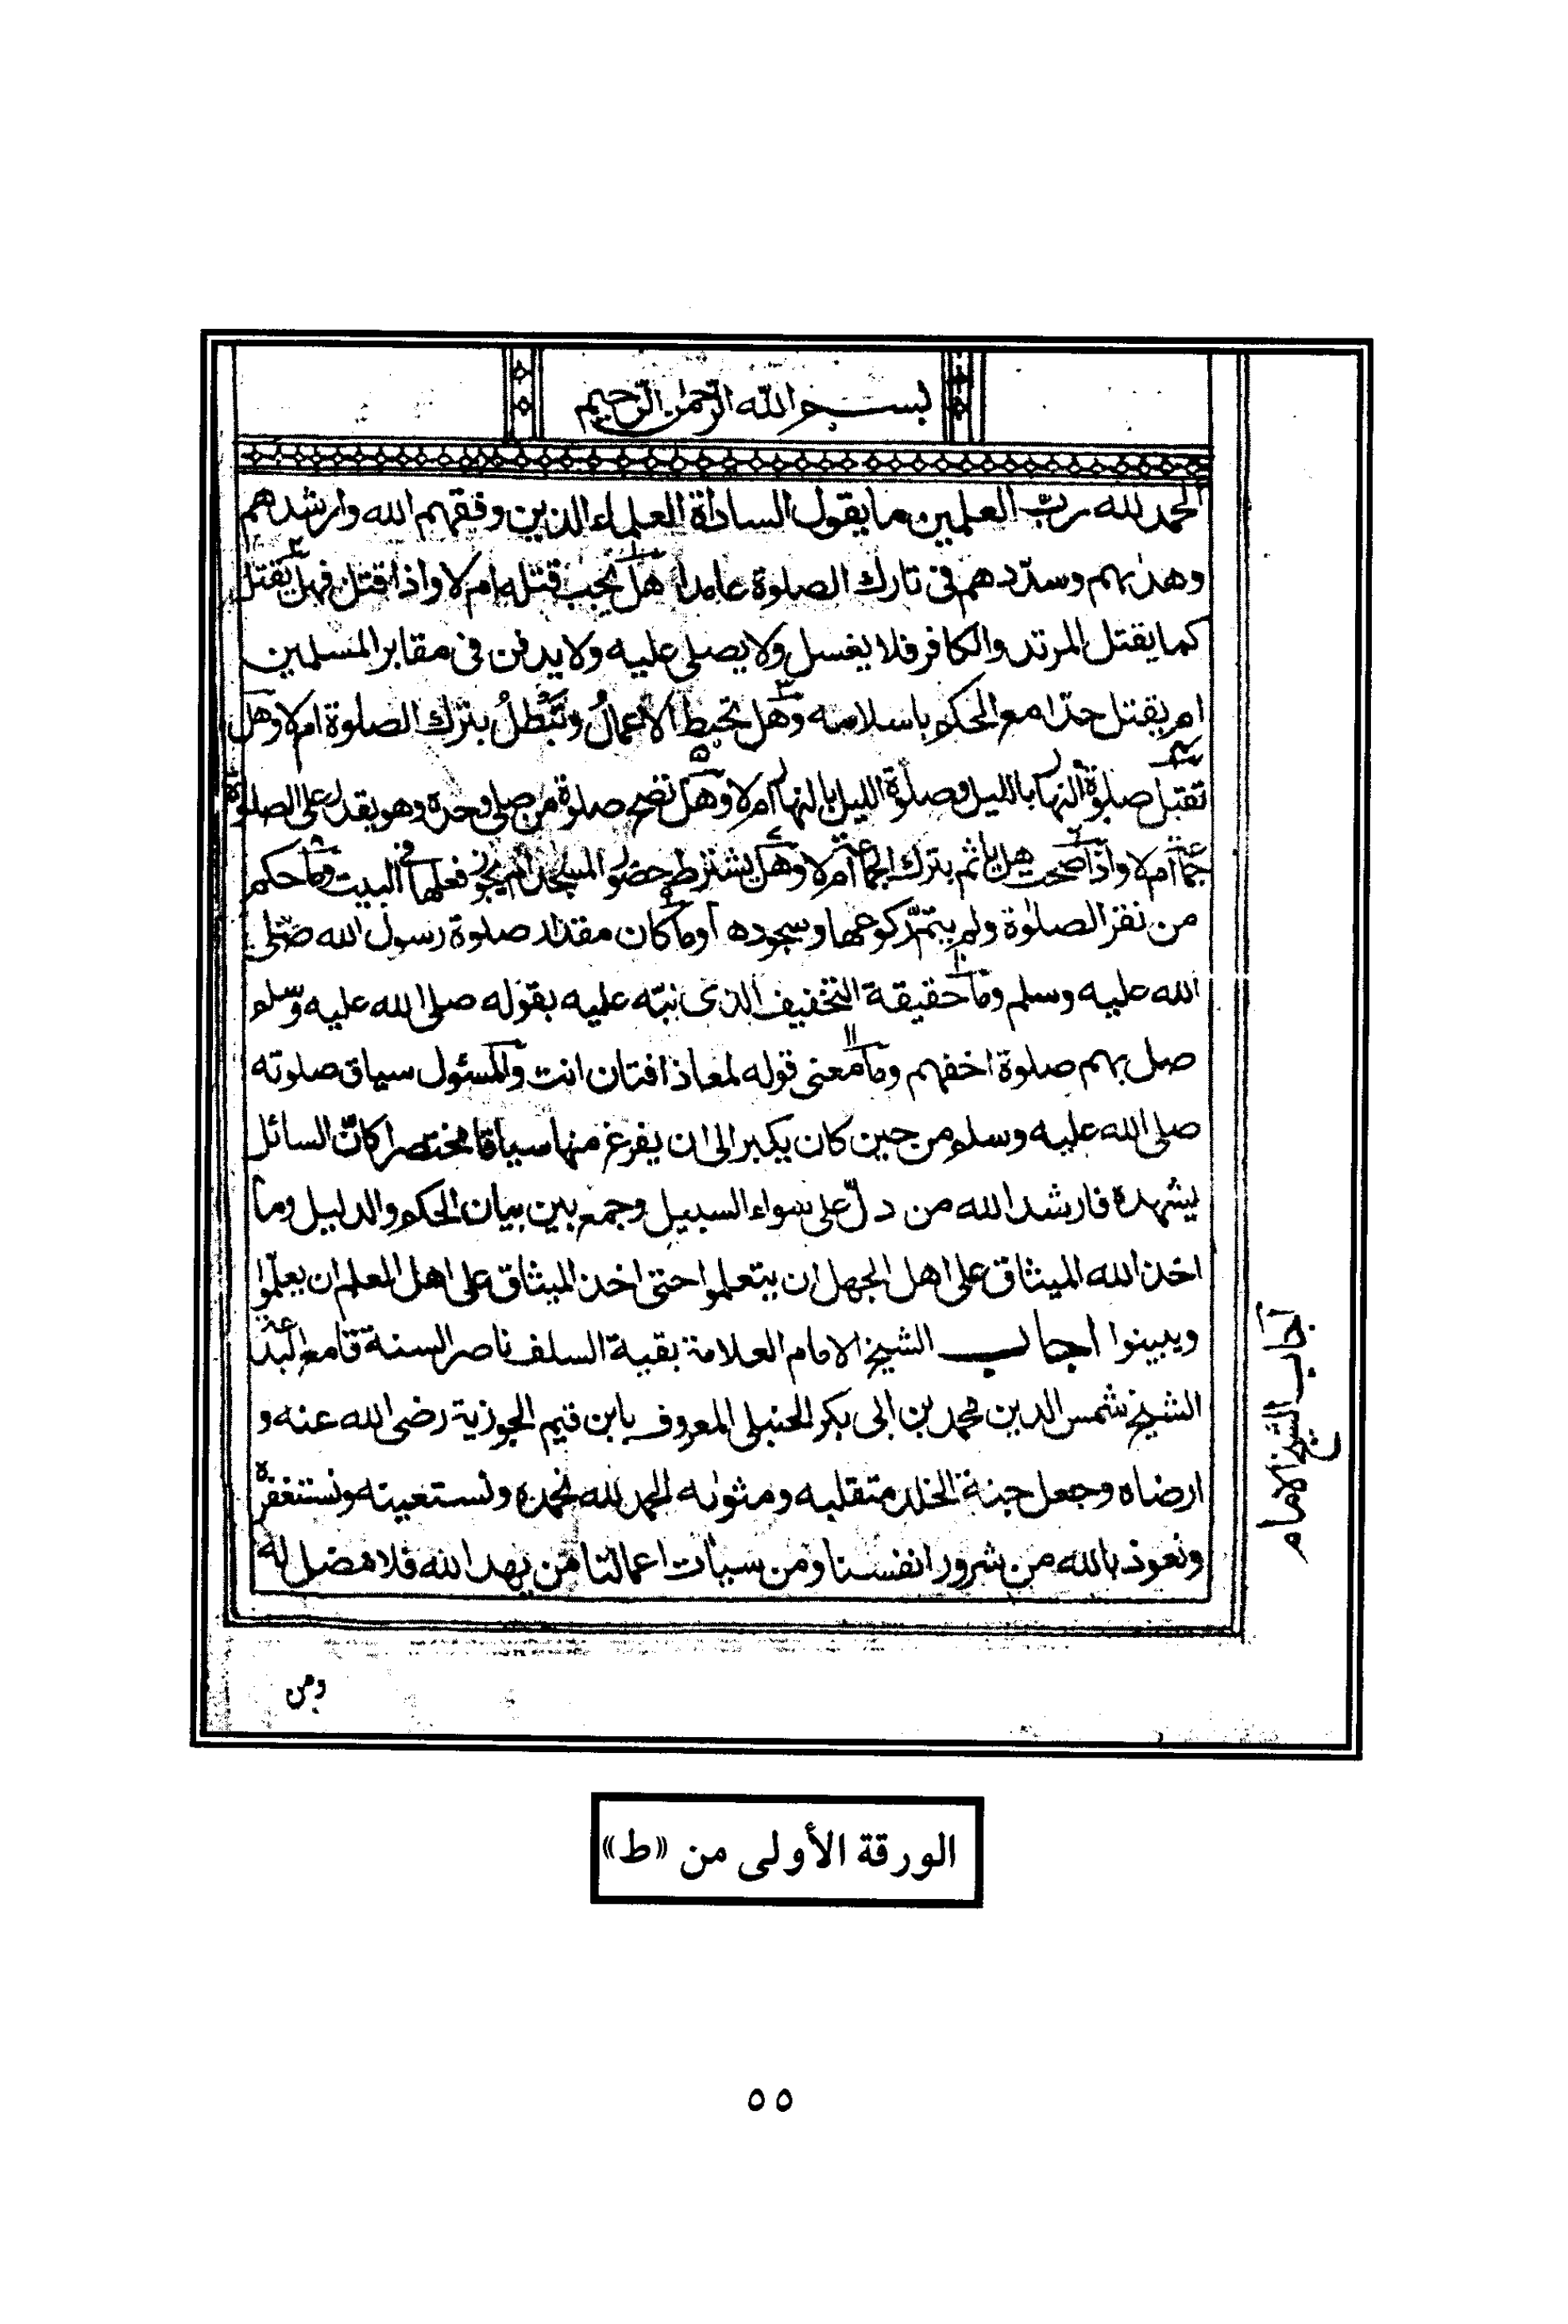 بسم الله الرحمن الرحيم
الحمد لله رب العلمين ما يقول السادة العلماء الذين وفقهم الله وارشدهم
وهدٰىهم وسددهم فى تارك الصلوة عامدا هل يجب قتله ام لا واذا قتل فهل يقتل
كما يقتل المرتد والكافر فلا يغسل ولا يصلى عليه ولا يدفن فى مقابر المسلمين
ام يقتل حدّا مع الحكم باسلامه وهل تحبط الاعمالُ وتَبْطُلُ بترك الصلوة ام لا وهل
تقبل صلوة النهار بالليل وصلوة الليل بالنهار ام لا وهل تصح صلوة من صلى وحده وهو يقدر على الصلوة
جماعة ام لا واذا صحت هل ياثم بترك الجماعة ام لا وهل يشترط حضور المسجد ام يجوز فعلها فى البيت وما حكم
من نقر الصلوٰة ولم يتمّ ركوعها وسجودها وما كان مقدار صلوة رسول الله صلى
الله عليه وسلم وما حقيقة التخفيف الذى نبّه عليه بقوله صلى الله عليه وسلم
صل بهم صلوة اخفهم وما معنى قوله لمعاذ افتان انت والمسئول سياق صلوته
صلى الله عليه وسلم من حين كان يكبر الى ان يفرغ منها سياقا مختصرا كانّ السائل
يشهده فارشد الله من دلّ على سواء السبيل وجمع بين بيان الحكم والدليل وما
اخذ الله الميثاق على اهل الجهل ان يتعلموا حتى اخذ الميثاق على اهل العلم ان يعلّموا
ويبينوا اجاب الشيخ الامام العلامة بقية السلف ناصر السنة قامع البدعة
الشيخ شمس الدين محمد بن ابى بكر الحنبلى المعروف بابن قيم الجوزية رضى الله عنه و
ارضاه وجعل جنة الخلد متقلبه ومثوٰىه الحمد لله نحمده ونستعينه ونستغفره
ونعوذ بالله من شرور انفسنا ومن سيأت اعمالنا من يهد الله فلا مضل له
اجاب الشيخ الامام
ومن
الورقة الأولى من «ط»
٥٥